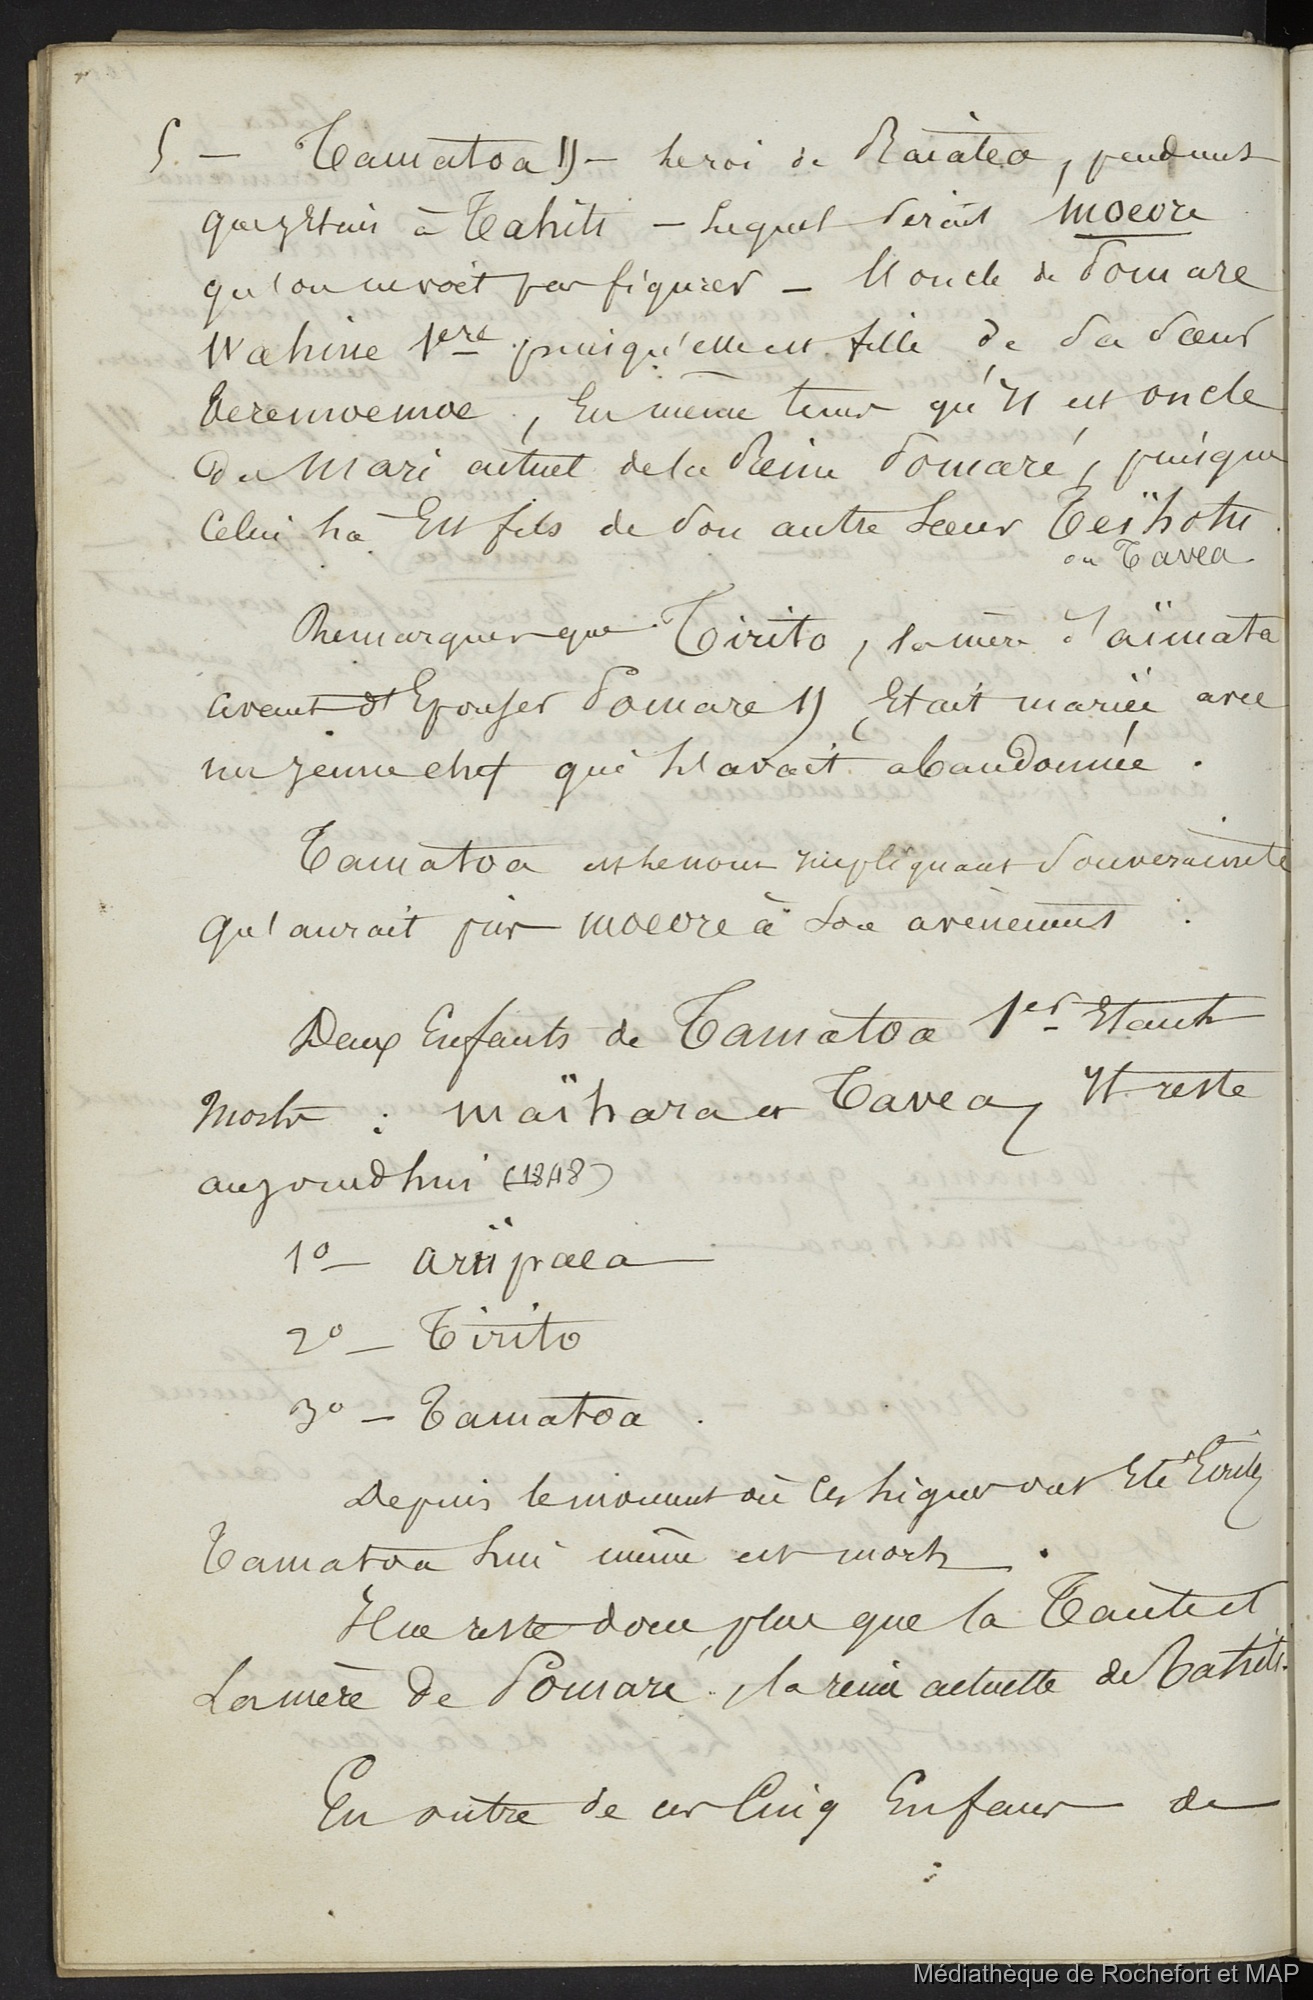 5. — Tamatoa II — le roi de Raiatea, pendant
que j'étais à Tahiti — lequel serait Moeore
qu'on ne voit pas figurer — Il oncle de Pomare
Wahine 1ère puisqu'elle est fille de sa sœur
Teremoemoe, En même tems qu'il est oncle
du Mari actuel de la Reine Pomaré, puisque
Celui là Est fils de son autre Sœur Teïhotu
ou Tavea
Remarquer que Tirito, la mère d'aïmata
avant d'Epouser Pomare II, Etait mariée avec
un jeune chef qui l'avait abandonnée.
Tamatoa est le nom impliquant Souveraineté
qu'aurait pris moeore à son avènement.
Deux Enfants de Tamatoa 1er Etant
Morts : maïhara et Tavea, Il reste
aujourdhui (1848)
1º — ariipaea —
2º — Tirito
3º — Tamatoa.
Depuis le moment où ces lignes ont Eté Ecrites
Tamatoa lui même est mort.
Il ne reste donc plus que la Tante et
La mère de Pomaré, la reine actuelle de Tahiti.
En outre de ces Cinq Enfans de
Médiathèque de Rochefort et MAP